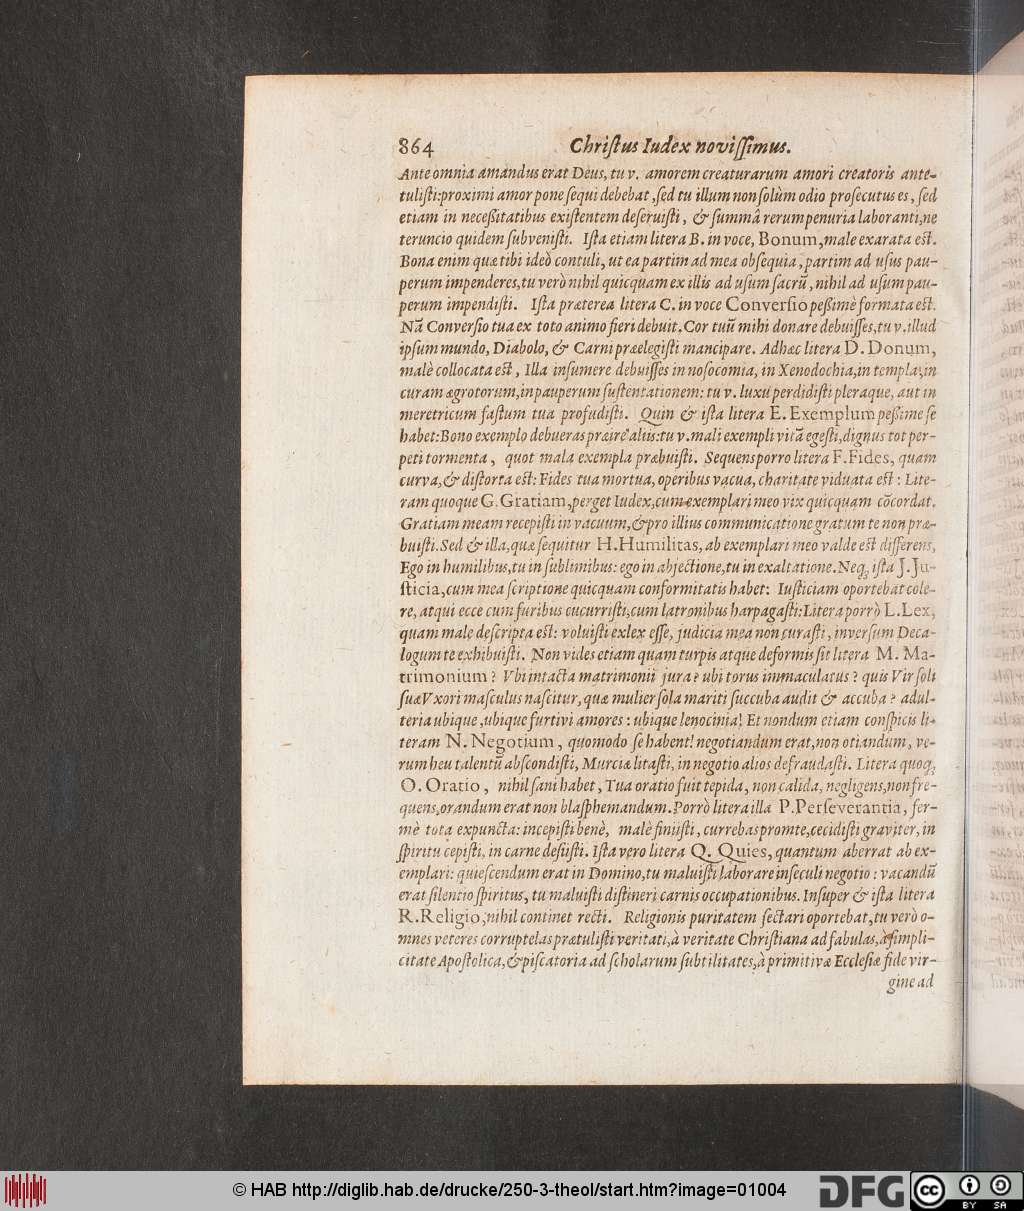 864 Christus Iudex novissimus.
Ante omnia amandus erat Deus, tu v. amorem creaturarum amori creatoris ante-
tulisti: proximi amor pone sequi debebat, sed tu illum non solùm odio prosecutus es, sed
etiam in necessitatibus existentem deseruisti, & summâ rerum penuria laboranti, ne
teruncio quidem subvenisti. Ista etiam litera B. in voce, Bonum, male exarata est.
Bona enim quæ tibi ideò contuli, ut ea partim ad mea obsequia, partim ad usus pau-
perum impenderes, tu verò nihil quicquam ex illis ad usum sacrũ, nihil ad usum pau-
perum impendisti. Ista præterea litera C. in voce Conversio peßimè formata est.
Nã Conversio tua ex toto animo fieri debuit. Cor tuũ mihi donare debuisses, tu v. illud
ipsum mundo, Diabolo, & Carni præelegisti mancipare. Adhæc litera D. Donum,
malè collocata est, Illa insumere debuisses in nosocomia, in Xenodochia, in templa, in
curam ægrotorum, in pauperum sustentationem: tu v. luxu perdidisti pleraque, aut in
meretricum fastum tua profudisti. Quin & ista litera E. Exemplum peßime se
habet: Bono exemplo debueras præire aliis: tu v. mali exempli vitã egesti, dignus tot per-
peti tormenta, quot mala exempla præbuisti. Sequens porro litera F. Fides, quam
curva, & distorta est: Fides tua mortua, operibus vacua, charitate viduata est: Lite-
ram quoque G. Gratiam, perget Iudex, cum exemplari meo vix quicquam cõcordat.
Gratiam meam recepisti in vacuum, & pro illius communicatione gratum te non præ-
buisti. Sed & illa, quæ sequitur H. Humilitas, ab exemplari meo valde est differens,
Ego in humilibus, tu in sublimibus: ego in abjectione, tu in exaltatione. Neq; ista J. Ju-
sticia, cum mea scriptione quicquam conformitatis habet: Iusticiam oportebat cole-
re, atqui ecce cum furibus cucurristi, cum latronibus harpagasti: Litera porrò L. Lex,
quam male descripta est: voluisti exlex esse, judicia mea non curasti, inversum Deca-
logum te exhibuisti. Non vides etiam quam turpis atque deformis sit litera M. Ma-
trimonium? Vbi intacta matrimonii jura? ubi torus immaculatus? quis Vir soli
suæ Vxori masculus nascitur, quæ mulier sola mariti succuba audit & accuba? adul-
teria ubique, ubique furtivi amores: ubique lenocinia! Et nondum etiam conspicis li-
teram N. Negotium, quomodo se habent! negotiandum erat, non otiandum, ve-
rum heu talentũ abscondisti, Murciæ litasti, in negotio alios defraudasti. Litera quoq;
O. Oratio, nihil sani habet, Tua oratio fuit tepida, non calida, negligens, non fre-
quens, orandum erat non blasphemandum. Porrò litera illa P. Perseverantia, fer-
mè tota expuncta: incepisti benè, malè finiisti, currebas promte, cecidisti graviter, in
spiritu cepisti, in carne desiisti. Ista vero litera Q. Quies, quantum aberrat ab ex-
emplari: quiescendum erat in Domino, tu maluisti laborare in seculi negotio: vacandũ
erat silentio spiritus, tu maluisti distineri carnis occupationibus. Insuper & ista litera
R. Religio, nihil continet recti. Religionis puritatem sectari oportebat, tu verò o-
mnes veteres corruptelas prætulisti veritati, à veritate Christiana ad fabulas, à simpli-
citate Apostolica, & piscatoria ad scholarum subtilitates, à primitivæ Ecclesiæ fide vir-
gine ad
© HAB http://diglib.hab.de/drucke/250-3-theol/start.htm?image=01004
DFG
cc BY SA